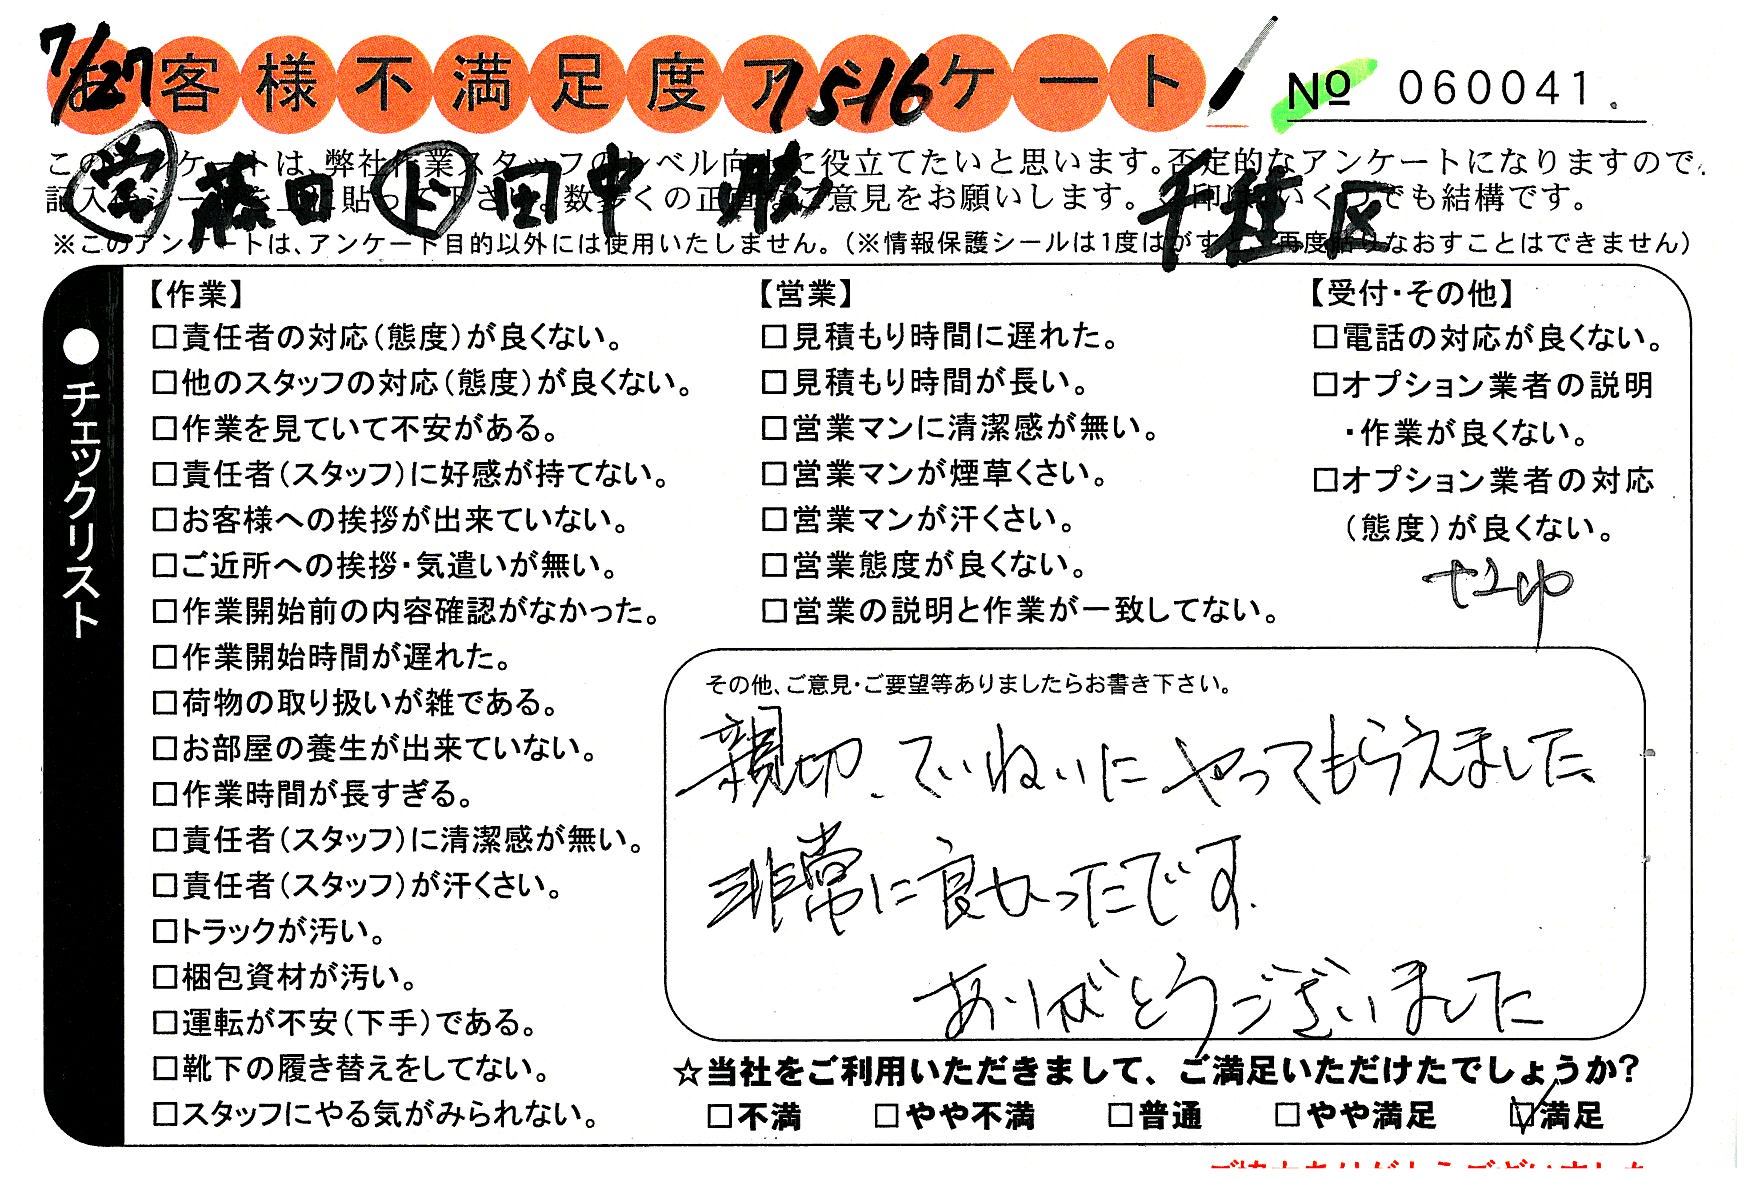 7/27
お客様不満足度アンケート
7516
No 060041
営 藤田 ド 田中
千種区
このアンケートは、弊社作業スタッフのレベル向上に役立てたいと思います。否定的なアンケートになりますので、
記入後シールを上に貼って下さい。数多くの正直なご意見をお願いします。✓印はいくつでも結構です。
※このアンケートは、アンケート目的以外には使用いたしません。(※情報保護シールは1度はがすと、再度貼りなおすことはできません)
●チェックリスト
【作業】
□責任者の対応(態度)が良くない。
□他のスタッフの対応(態度)が良くない。
□作業を見ていて不安がある。
□責任者(スタッフ)に好感が持てない。
□お客様への挨拶が出来ていない。
□ご近所への挨拶・気遣いが無い。
□作業開始前の内容確認がなかった。
□作業開始時間が遅れた。
□荷物の取り扱いが雑である。
□お部屋の養生が出来ていない。
□作業時間が長すぎる。
□責任者(スタッフ)に清潔感が無い。
□責任者(スタッフ)が汗くさい。
□トラックが汚い。
□梱包資材が汚い。
□運転が不安(下手)である。
□靴下の履き替えをしてない。
□スタッフにやる気がみられない。
【営業】
□見積もり時間に遅れた。
□見積もり時間が長い。
□営業マンに清潔感が無い。
□営業マンが煙草くさい。
□営業マンが汗くさい。
□営業態度が良くない。
□営業の説明と作業が一致してない。
【受付・その他】
□電話の対応が良くない。
□オプション業者の説明
・作業が良くない。
□オプション業者の対応
(態度)が良くない。
その他、ご意見・ご要望等ありましたらお書き下さい。
親切、ていねいにやってもらえました、
非常に良かったです.
ありがとうございました
☆当社をご利用いただきまして、ご満足いただけたでしょうか?
□不満 □やや不満 □普通 □やや満足 ☑満足
ご協力ありがとうございました